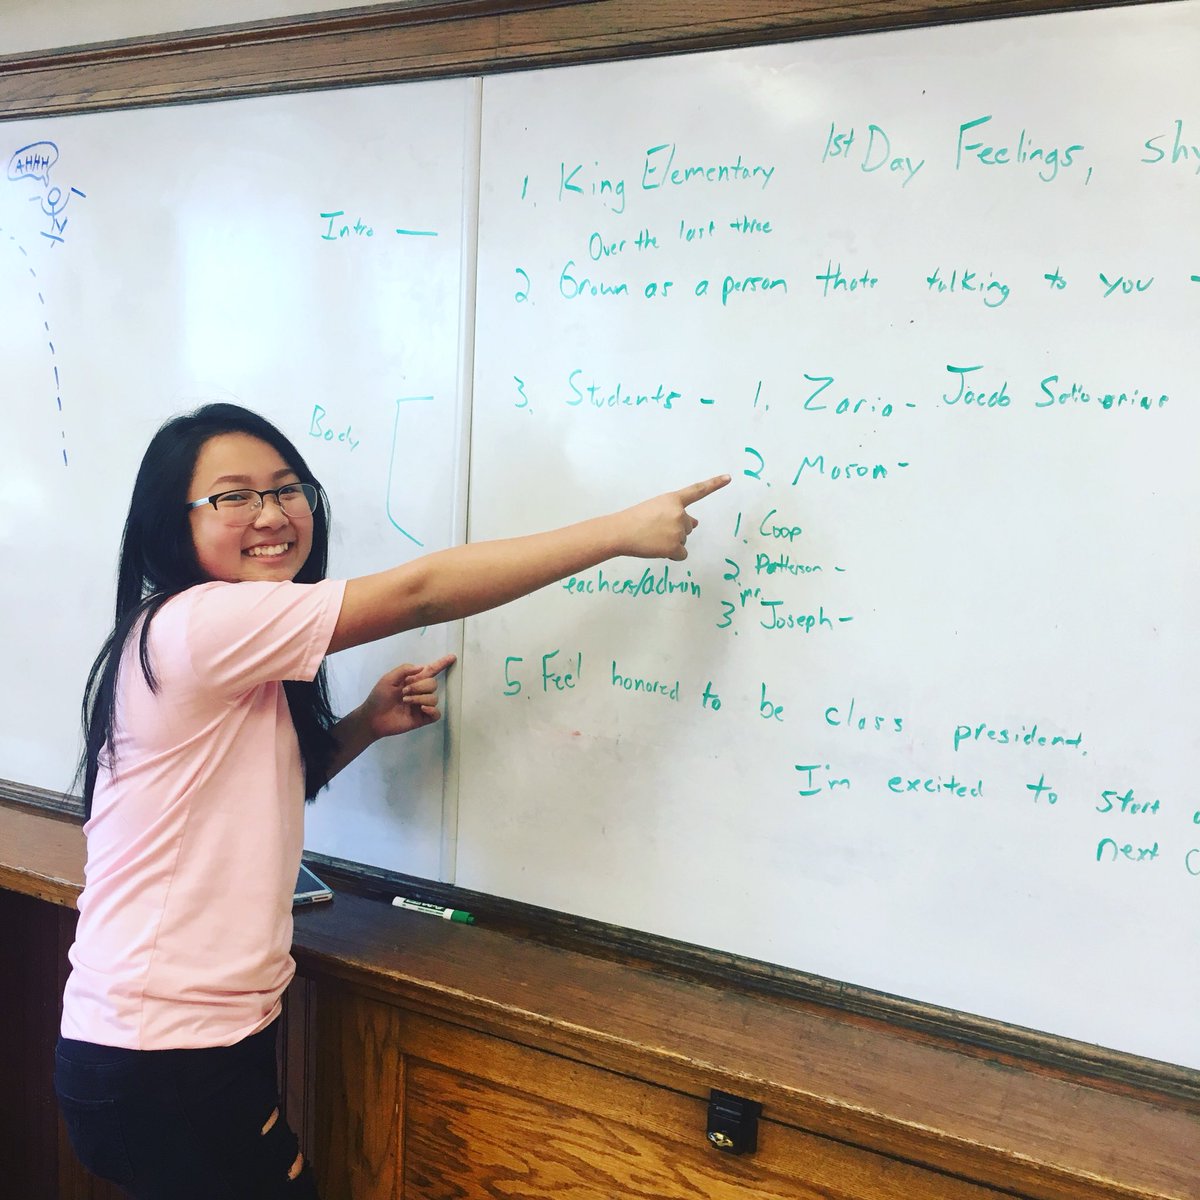 AHHH
Intro —
Body
1st Day Feelings, shy,
1. King Elementary
Over the last three
2. Grown as a person thats talking to you -
3. Students - 1. Zaria - Jacob
2. Mason -
1. Coop
eachers/admin 2. Patterson -
3. Mr. Joseph -
5. Feel honored to be class president.
I'm excited to start
next